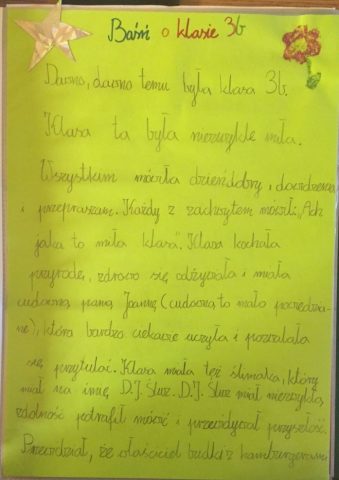 Baśń o klasie 3b
Dawno, dawno temu była klasa 3b.
Klasa ta była niezwykle miła.
Wszystkim mówiła dzień dobry, i
i przepraszam. Każdy z zachwytem mówił: „Ach
jaka to miła klasa". Klasa kochała
przyrodę, zdrowo się odżywiała i miała
cudowną panią Joannę (cudowna to mało powiedzia-
ne), która bardzo ciekawie uczyła i pozwalała
się przytulać. Klasa miała też ślimaka, który
miał na imię D.J. Śluz. D.J. Śluz miał niezwykłą
zdolność potrafił mówić i przewidywał przyszłość.
Przewidział, że właściciel budki z hamburgerami